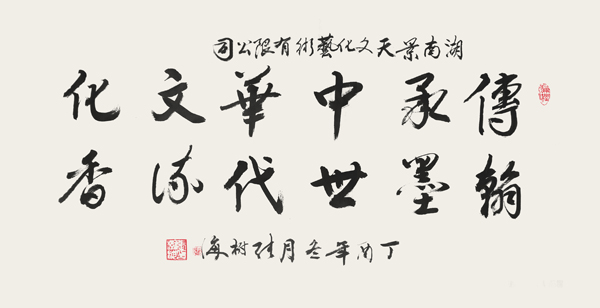 湖南景天文化藝術有限公司
傳承中華文化
翰墨世代流香
丁酉年冬月樹海